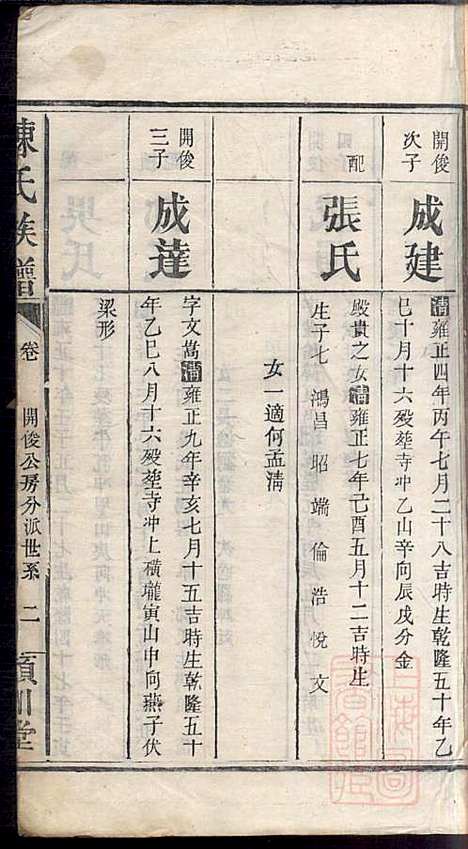 開俊
次子
成建
清雍正四年丙午七月二十八吉時生乾隆五十年乙
巳十月十六殁塟寺冲乙山辛向辰戌分金
配
張氏
殿貴之女清雍正七年己酉五月十二吉時生
生子七 鴻昌 昭 端 倫 浩 悅 文
女一適何孟清
開俊
三子
成達
字文蒿清雍正九年辛亥七月十五吉時生乾隆五十
年乙巳八月十六殁塟寺冲上橫壠寅山申向燕子伏
梁形
陳氏族譜
卷
開俊公房分派世系
二
潁川堂